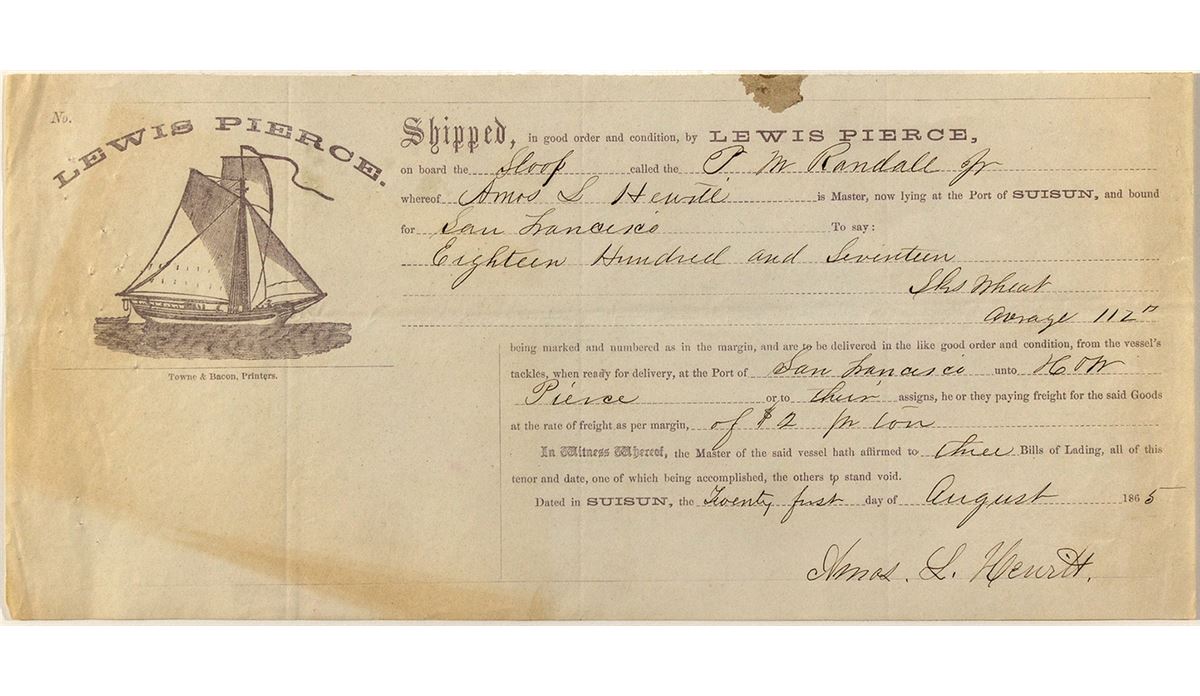 No.
LEWIS PIERCE.
Towne & Bacon, Printers.
Shipped, in good order and condition, by LEWIS PIERCE,
on board the Sloop called the P M Randall Jr
whereof Amos L Hewitt is Master, now lying at the Port of SUISUN, and bound
for San Francisco To say:
Eighteen Hundred and Seventeen
Sks Wheat
avrage 112"
being marked and numbered as in the margin, and are to be delivered in the like good order and condition, from the vessel's
tackles, when ready for delivery, at the Port of San Francisco unto
Pierce or to their assigns, he or they paying freight for the said Goods
at the rate of freight as per margin, of $2 pr ton
In Witness Whereof, the Master of the said vessel hath affirmed to three Bills of Lading, all of this
tenor and date, one of which being accomplished, the others to stand void.
Dated in SUISUN, the Twenty first day of August 1865
Amos. L. Hewitt.